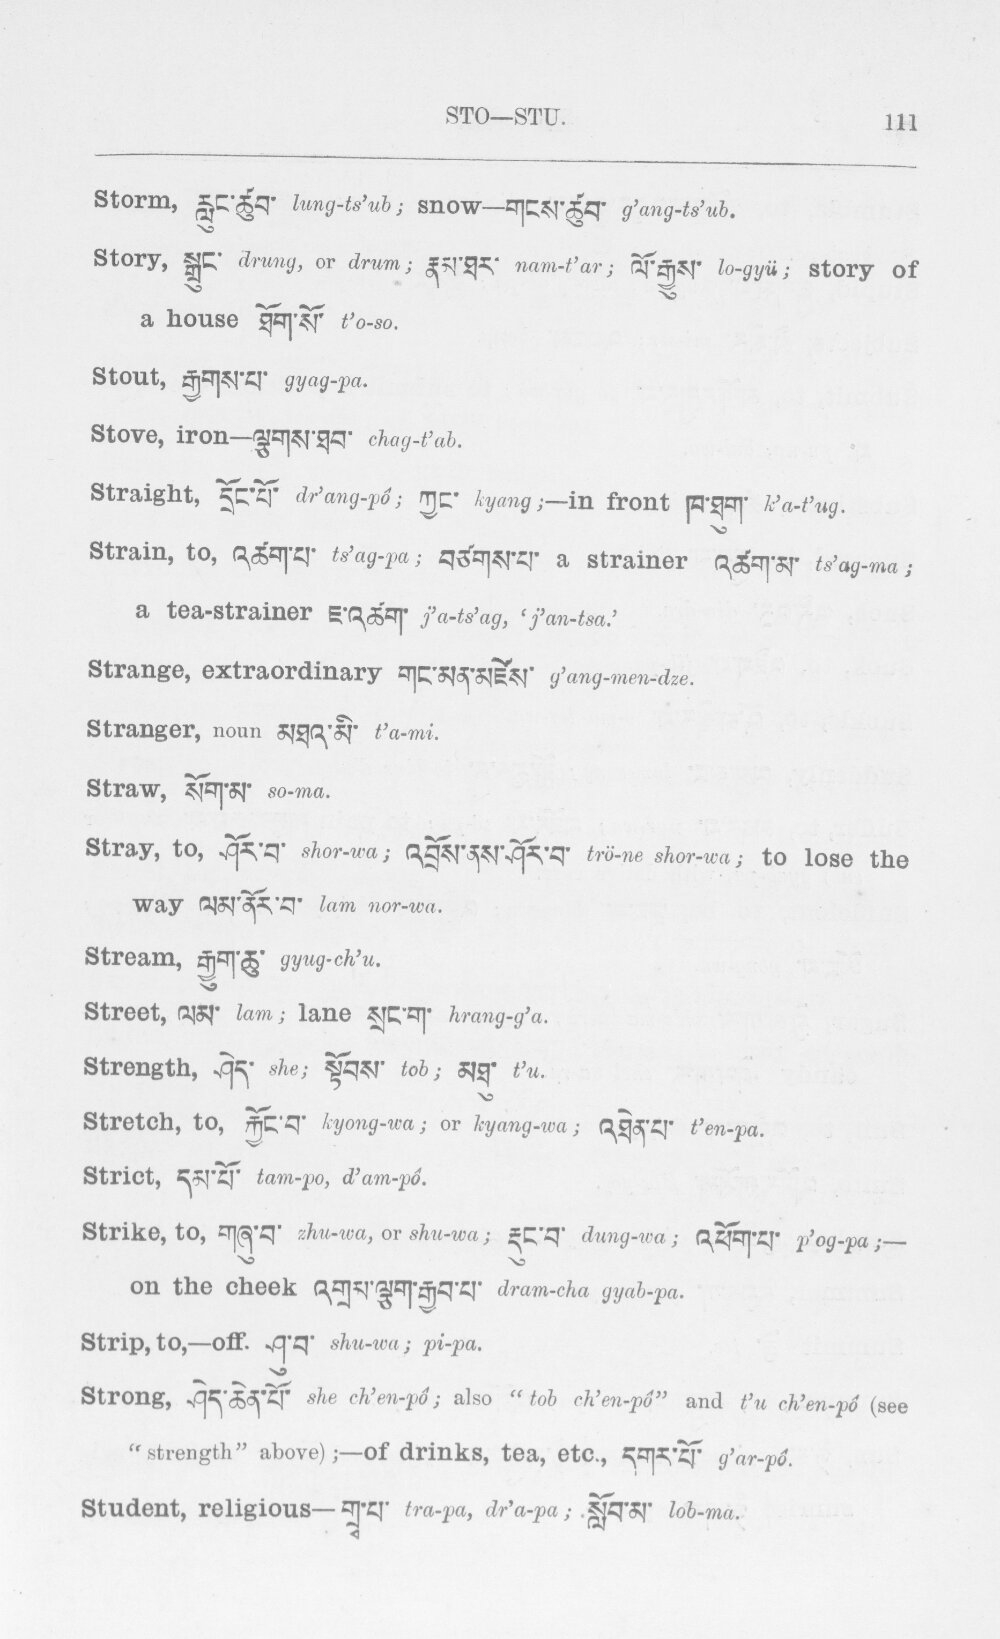 STO—STU.
111
Storm, རླུང་ཚུབ་ lung-ts’ub; snow—གངས་ཚུབ་ g’ang-ts’ub.
Story, སྒྲུང་ drung, or drum; རྣམ་ཐར་ nam-t’ar; ལོ་རྒྱུས་ lo-gyü; story of
a house ཐོག་སོ་ t’o-so.
Stout, རྒྱགས་པ་ gyag-pa.
Stove, iron—ལྕགས་ཐབ་ chag-t’ab.
Straight, དྲོང་པོ་ dr’ang-pó; ཀྱང་ kyang;—in front ཁ་ཐུག་ k’a-t’ug.
Strain, to, འཚག་པ་ ts’ag-pa; བཙགས་པ་ a strainer འཚག་མ་ ts’ag-ma;
a tea-strainer ཇ་འཚག་ j’a-ts’ag, ‘j’an-tsa.’
Strange, extraordinary གང་མན་མཛེས་ g’ang-men-dze.
Stranger, noun མཐའ་མི་ t’a-mi.
Straw, སོག་མ་ so-ma.
Stray, to, ཤོར་བ་ shor-wa; འབྲོས་ནས་ཤོར་བ་ trö-ne shor-wa; to lose the
way ལམ་ནོར་བ་ lam nor-wa.
Stream, རྒྱུག་ཆུ་ gyug-ch’u.
Street, ལམ་ lam; lane སྲང་ག་ hrang-g’a.
Strength, ཤེད་ she; སྟོབས་ tob; མཐུ་ t’u.
Stretch, to, རྐྱོང་བ་ kyong-wa; or kyang-wa; འཐེན་པ་ t’en-pa.
Strict, དམ་པོ་ tam-po, d’am-pó.
Strike, to, གཞུ་བ་ zhu-wa, or shu-wa; རྡུང་བ་ dung-wa; འཕོག་པ་ p’og-pa;—
on the cheek འགྲམ་ལྕག་རྒྱབ་པ་ dram-cha gyab-pa.
Strip, to,—off. ཤུ་བ་ shu-wa; pi-pa.
Strong, ཤེད་ཆེན་པོ་ she ch’en-pó; also “tob ch’en-pó” and t’u ch’en-pó (see
“strength” above);—of drinks, tea, etc., དགར་པོ་ g’ar-pó.
Student, religious—གྲྭ་པ་ tra-pa, dr’a-pa; སློབ་མ་ lob-ma.